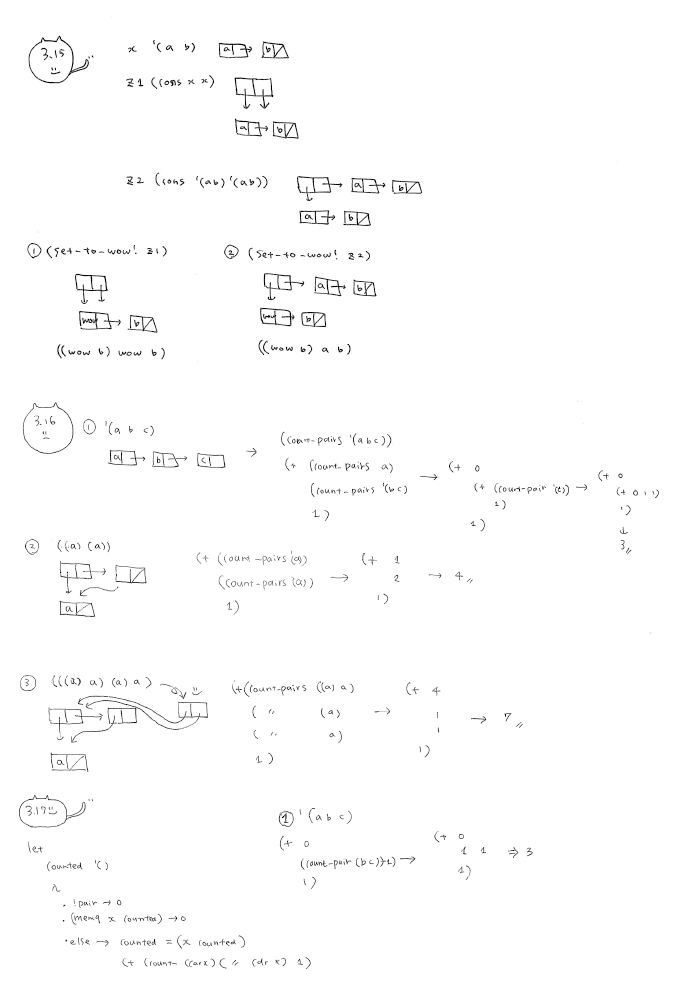 3.15
x '(a b) a b
z1 (cons x x)
a b
z2 (cons '(ab) '(ab)) a b
a b
① (set-to-wow! z1)
wow b
((wow b) wow b)
② (set-to-wow! z2)
a b
wow b
((wow b) a b)
3.16
① '(a b c)
a b c
→
(count-pairs '(abc))
(+ (count-pairs a)
(count-pairs '(bc)
1)
→
(+ 0
(+ (count-pair '(c)) →
1)
1)
(+ 0
(+ 0 1 1)
1)
↓
3〃
② ((a) (a))
a
(+ ((count-pairs '(a))
(count-pairs (a))
1)
→
(+ 1
2
1)
→ 4〃
③ (((a) a) (a) a)
a
(+(count-pairs ((a) a)
( 〃 (a)
( 〃 a)
1)
→
(+ 4
1
1
1)
→ 7〃
3.17
let
counted '()
λ
. !pair → 0
. (memq x counted) → 0
・else → counted = (x counted)
(+ (count- (carx) ( 〃 (dr x) 1)
① '(a b c)
(+ 0
(count-pair (bc))+1) →
1)
(+ 0
1 1
1)
⇒ 3